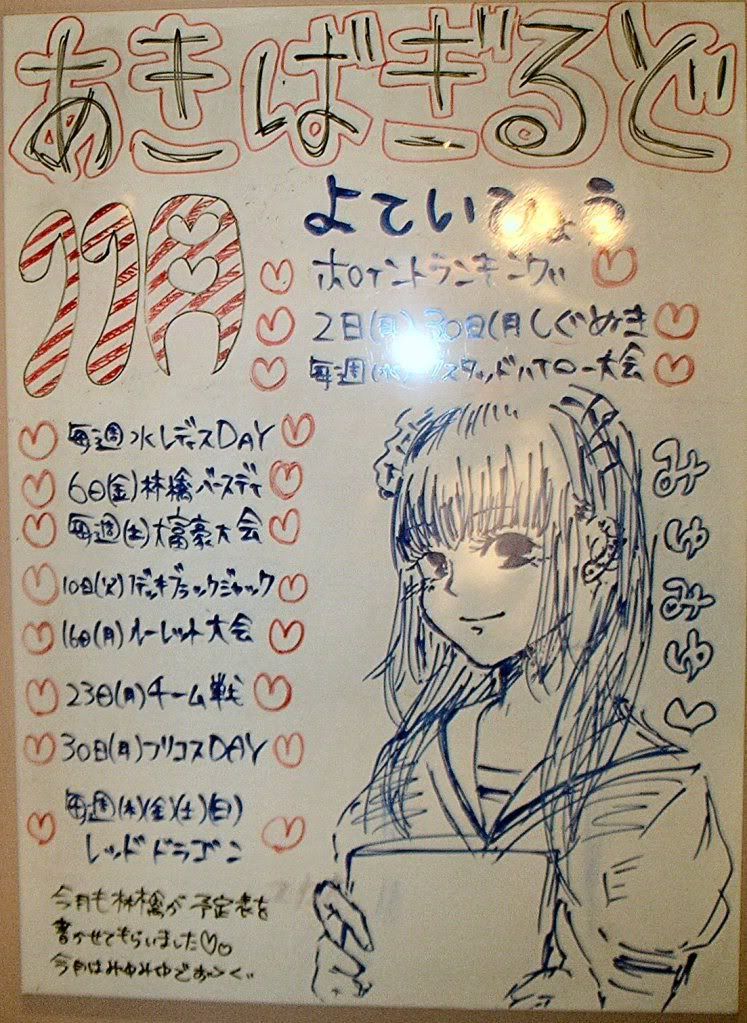 あきばぎるど
11月
よていひょう
ポイントランキングin
2日(月)30日(月しぐぬき
毎週(水)スタッドハイロー大会
毎週水レディスDAY
6日(金)林檎バースデイ
毎週(土)大富豪大会
10日(火)デッキブラックジャック
16日(月)ルーレット大会
23日(月)チーム戦
30日(月)プリコスDAY
毎週(木)(金)(土)(日)
レッドドラゴン
みゅみゅ
今月も林檎が予定表を
書かせてもらいました
今月はみゅみゅで